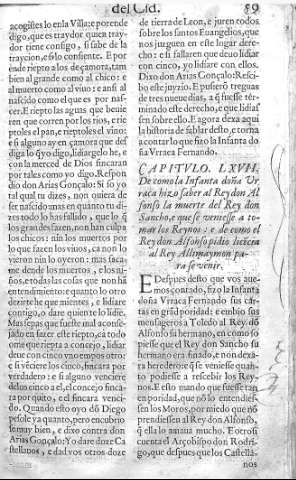 del Cid.
89
acogistes lo en la Villa: e porende
digo, que es traydor quien tray-
dor tiene consigo, si sabe de la
traycion, e si lo consiente. E por
ende riepto a los de Çamora, tam
bien al grande como al chico: e
al muerto como al viuo: e ansi al
nascido como el que es por nas-
cer. E riepto las aguas que beuie
ren que corren por los rios, e rie
ptoles el pan, e rieptoles el vino:
e si alguno ay en çamora que del
diga lo que yo digo, lidiargelo he, e
con la merced de Dios fincaran
por tales como yo digo. Respon
dio don Arias Gonçalo: Si so yo
tal qual tu dizes, non quiera de
ser nascido: mas en quanto tu di
zes todo lo has fallido, que lo que
los grandes fazen, non han culpa
los chicos: nin los muertos por
lo que fazen los viuos, ca non lo
vieron nin lo oyeron: mas saca
me dende los muertos, e los ni-
ños, e todas las cosas que non hã
entendimiento: e quanto lo otro
dezirte he que mientes, e lidiare
contigo, o dare quien te lo lidie.
Mas sepas que fueste mal aconse-
jado en fazer este riepto, ca todo
ome que riepta a concejo, lidiar
deue con cinco vno empos otro:
e si vēciere los cinco, fincara por
verdadero: e si alguno venciere
delos cinco a el, el concejo finca-
ra por quito, e el fincara venci-
do. Quando esto oyo dõ Diego
pesole ya quanto, pero encubrio
se muy bien, e dixo contra don
Arias Gonçalo: Yo dare doze Ca
stellanos, e dad vos otros doze
de tierra de Leon, e juren todos
sobre los santos Euangelios, que
nos juzguen en este lugar dere-
cho: e si fallaren que deuo lidiar
con cinco, yo lidiare con ellos.
Dixo don Arias Gonçalo: Resci-
bo este juyzio. E pusierõ treguas
de tres nueue dias, a que fuesse ter
minado este derecho, e que lidiaf
sen sobre ello. E agora dexa aqui
la historia de fablar desto, e torna
a contar lo que fizo la Infanta do
ña Vrraca Fernando.
CAPITVLO. LXVII.
De como la Infanta doña Vr
raca hizo saber al Rey don Al
fonso la muerte del Rey don
Sancho, e que se veniesse a to-
mar los Reynos: e de como el
Rey don Alfonso pidio licēcia
al Rey Allimaymon pa-
ra se venir.
E Despues desto que vos aue-
mos contado, fizo la Infanta
doña Vrraca Fernando sus car-
tas en grã poridad: e embio sus
mensageros a Toledo al Rey dõ
Alfonso su hermano, en como so
piesse que el Rey don Sancho su
hermano era finado, e non dexa-
ra heredero: e que se veniesse quan-
to pudiesse a rescebir los Rey-
nos. E esto mando que fuesse tan
en poridad, que nõ lo entendies-
sen los Moros, por miedo que nõ
prendiessen al Rey don Alfonso,
que ella lo amaua mucho. E otrosi
cuenta el Arçobispo don Rodri-
go, que despues que los Castella-
nos